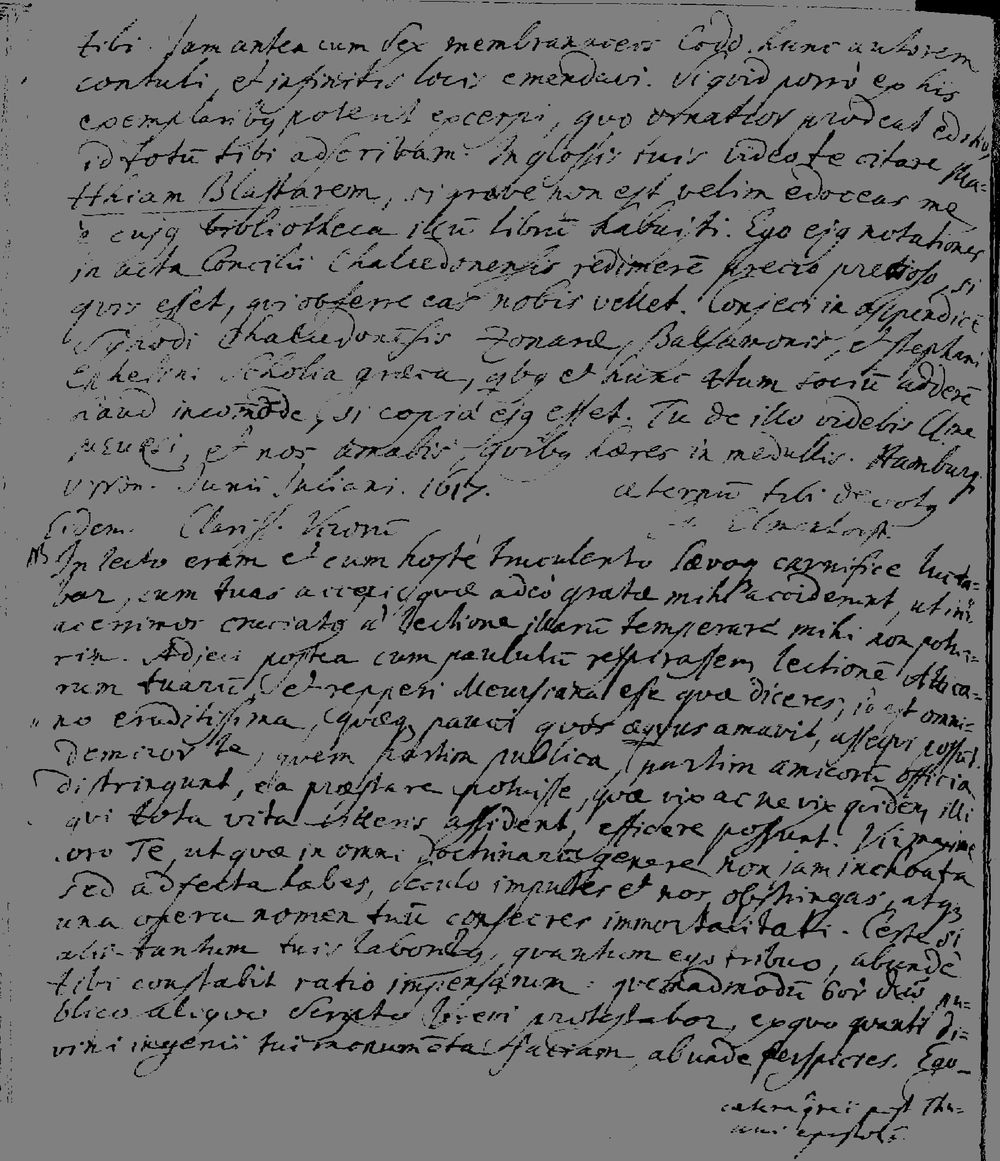 tibi. Jam antea cum sex membranaceis Codd. hunc autorem
contuli, et infinitis locis emendavi. Si quid porrò ex his
exemplaribq poterit excerpi, quo ornatior prodeat editio,
id totū tibi adscribam. In glossis tuis video te citare Ma-
tthiam Blastarem, si grave non est velim edoceas me
è cujq bibliotheca illū librū habuisti. Ego ejq notationes
in acta Concilii Chalcedonensis redimerē precio pretioso, si
quis esset, qui offerre eas nobis vellet. Conjeci in appendicē
Synodi Chalcedonēsis Zonaræ, Balsamonis, et Stephani
Ephesini Scholia græca, qbq et nunc istum sociū adderē
haud incōmode, si copia ejq esset. Tu de illo videbis Cl̄me
Meursi, et nos amabis, quibq hæres in medullis. Hamburg
Junii Juliani. 1617. æternū tibi devotq
Elmenhorst.
Eidem Clariss. Virorū
NB In lecto eram et cum hoste truculento sævoq carnifice lucta-
bar, cum tuas accepi, quæ adeò gratæ mihi acciderunt, ut in
acerrimos cruciatq à lectione illarū temperare mihi non potue-
rim. Adjeci postea cum paululū respirassem lectionē Attica-
rum tuarū, et repperi Meursiana esse quæ diceres, id est omni-
no eruditissima, quæq pauci quos æquus amavit, assequi possūt.
demiror te, quem partim publica, partim amicorū officia
distringunt, ea præstare potuisse, quæ vix ac ne vix quidem illi
qui tota vita litteris assident, efficere possunt. Vir maxime
oro Te, ut quæ in omni doctrinarū genere non jam inchoata
sed adfecta habes, seculo imputes et nos obstringas, atqȝ
una opera nomen tuū consecres immortalitati. Certe si
alii tantum tuis laboribq, quantum ego tribuo, abundè
tibi constabit ratio impensarum: quemadmodū pu-
blico aliquo Scripto brevi protestabor, ex quo quanti di-
vini ingenii tui monumēta faciam, abunde perspicies. Ego
cætera post Thu-
ani epistolā.